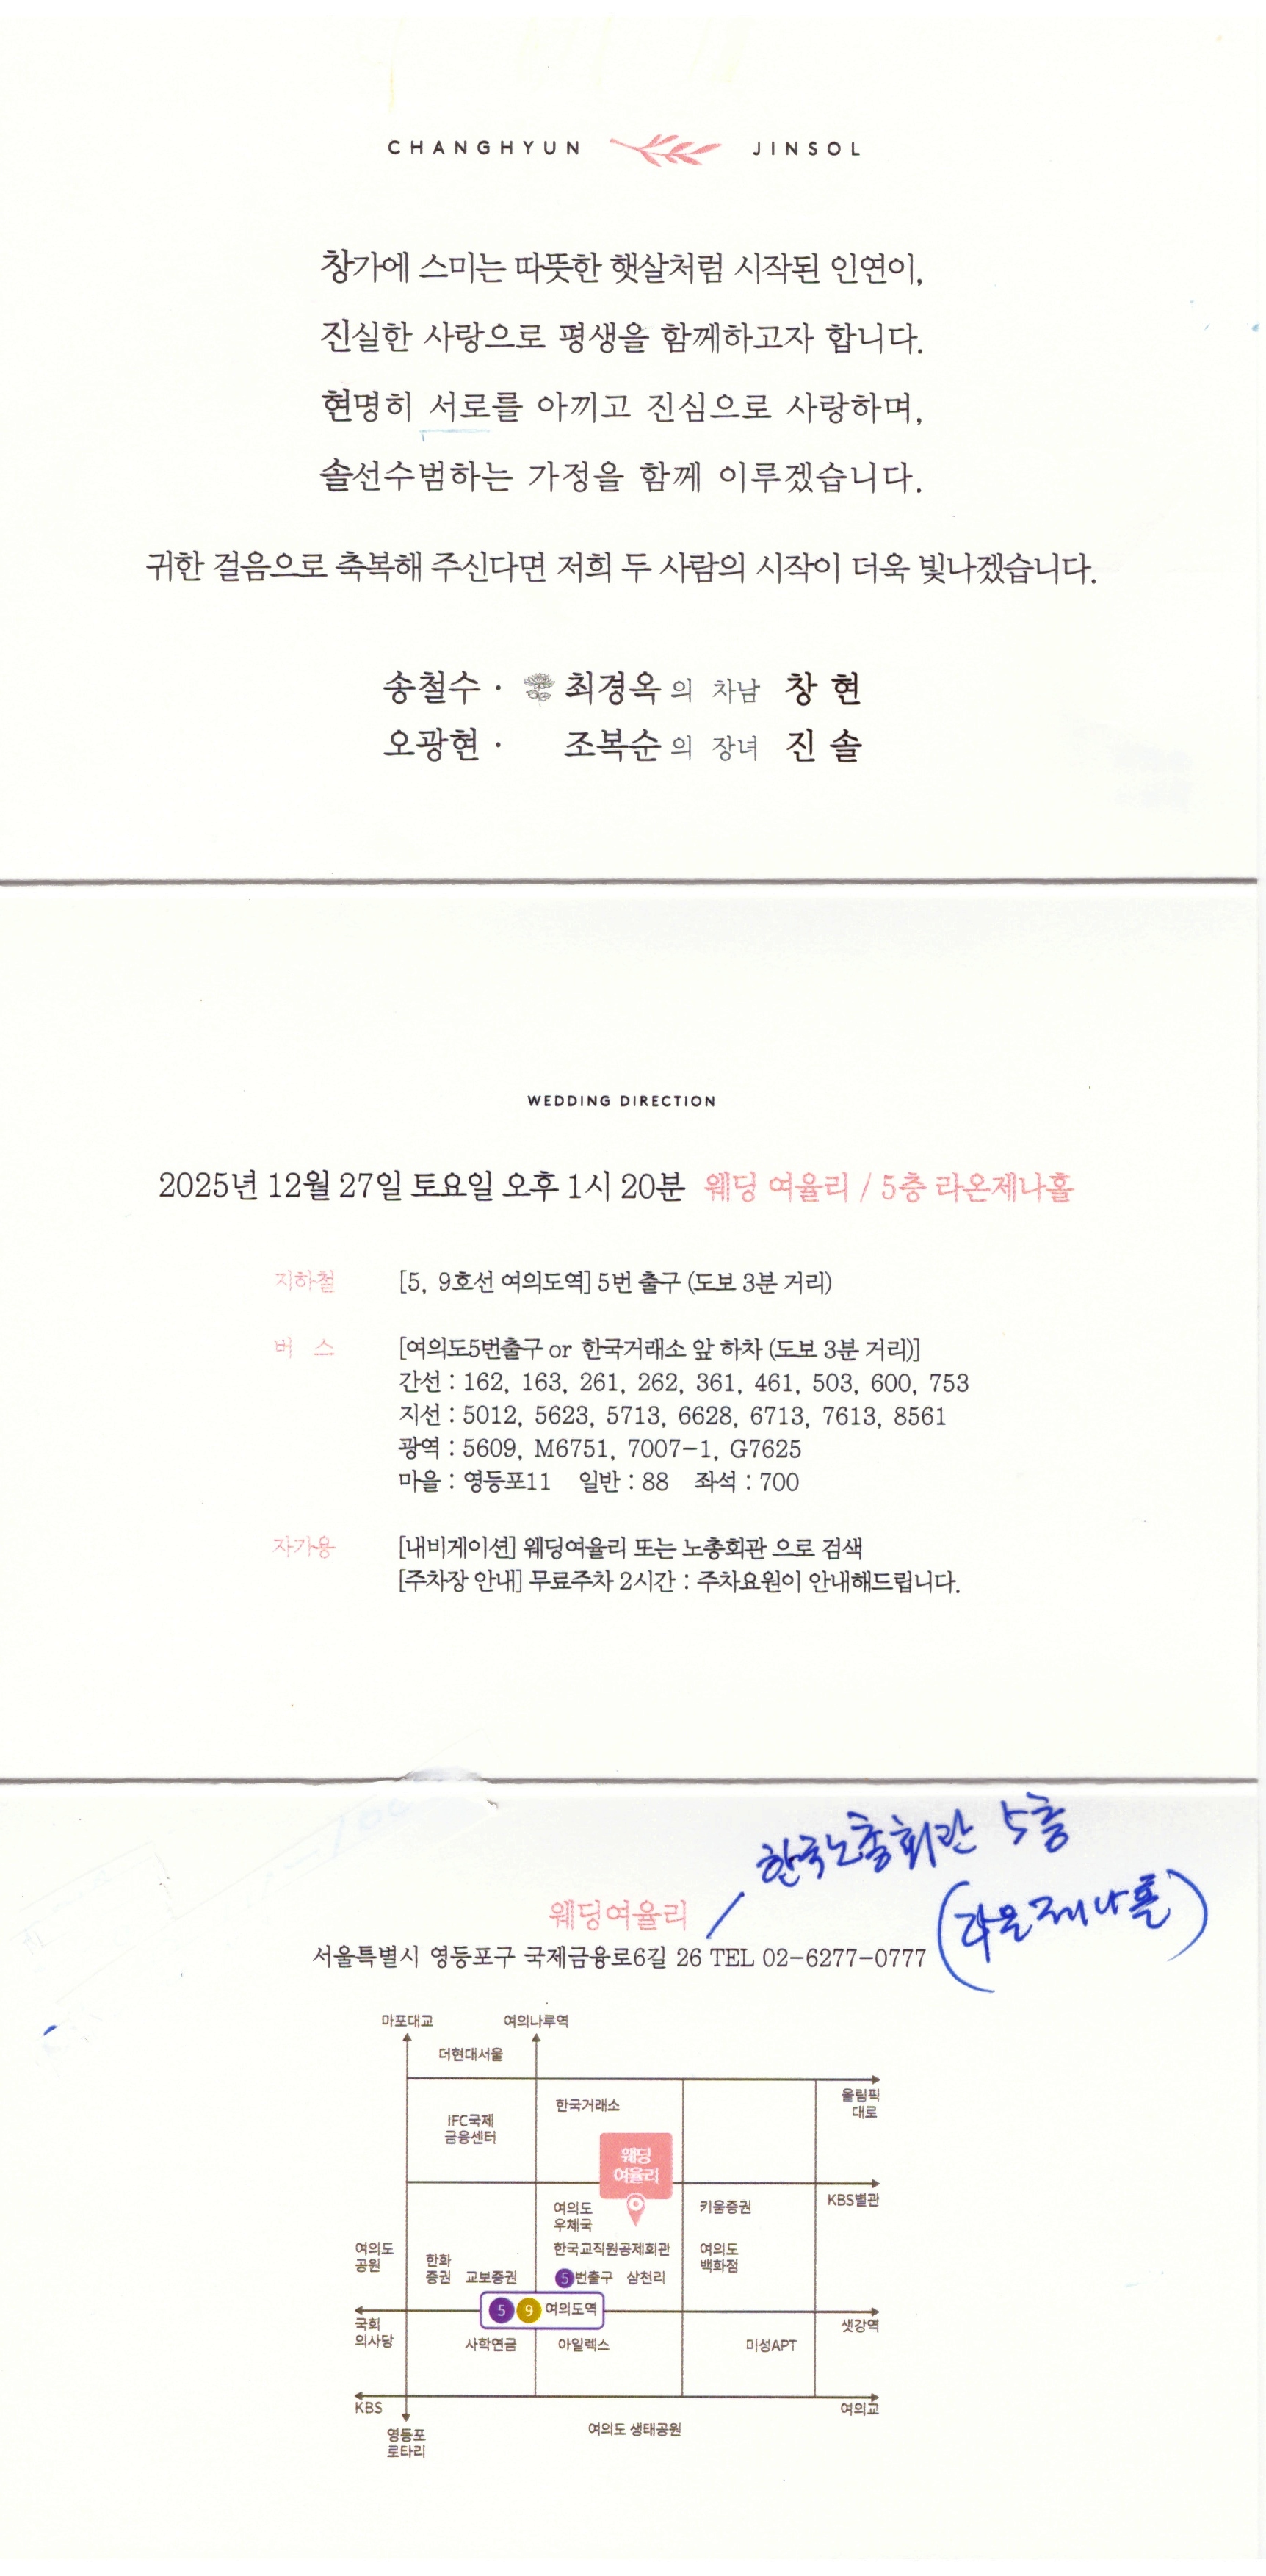 CHANGHYUN JINSOL
창가에 스미는 따뜻한 햇살처럼 시작된 인연이,
진실한 사랑으로 평생을 함께하고자 합니다.
현명히 서로를 아끼고 진심으로 사랑하며,
솔선수범하는 가정을 함께 이루겠습니다.
귀한 걸음으로 축복해 주신다면 저희 두 사람의 시작이 더욱 빛나겠습니다.
송철수 · 최경옥의 차남 창현
오광현 · 조복순의 장녀 진솔
WEDDING DIRECTION
2025년 12월 27일 토요일 오후 1시 20분 웨딩 여율리 / 5층 라온제나홀
지하철 [5, 9호선 여의도역] 5번 출구 (도보 3분 거리)
버 스 [여의도5번출구 or 한국거래소 앞 하차 (도보 3분 거리)]
간선 : 162, 163, 261, 262, 361, 461, 503, 600, 753
지선 : 5012, 5623, 5713, 6628, 6713, 7613, 8561
광역 : 5609, M6751, 7007-1, G7625
마을 : 영등포11 일반 : 88 좌석 : 700
자가용 [내비게이션] 웨딩여율리 또는 노총회관 으로 검색
[주차장 안내] 무료주차 2시간 : 주차요원이 안내해드립니다.
한국노총회관 5층
(라온제나홀)
웨딩여율리
서울특별시 영등포구 국제금융로6길 26 TEL 02-6277-0777
마포대교 여의나루역
더현대서울
올림픽
대로
한국거래소
IFC국제
금융센터
웨딩
여율리
KBS별관
여의도
우체국
키움증권
여의도
공원
한국교직원공제회관
여의도
백화점
한화
증권
교보증권
5번출구 삼천리
5 9 여의도역
국회
의사당
샛강역
사학연금 아일렉스 미성APT
KBS
여의교
영등포
로타리
여의도 생태공원